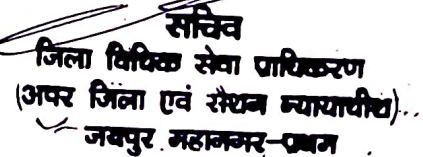 सचिव
जिला विधिक सेवा प्राधिकरण
(अपर जिला एवं सैशन न्यायाधीश)
जयपुर महानगर-प्रथम